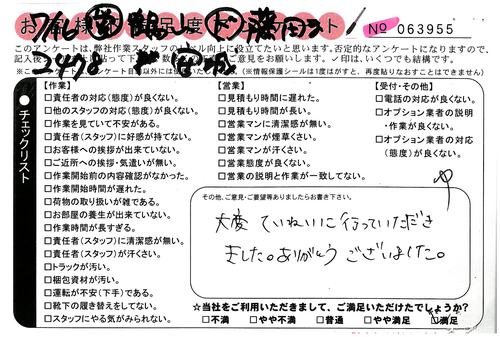 No 063955
このアンケートは、弊社作業スタッフのレベル向上に役立てたいと思います。否定的なアンケートになりますので、
ご意見をお願いします。✓印は、いくつでも結構です。
(※情報保護シールは1度はがすと、再度貼りなおすことはできません)
チェックリスト
【作業】
□責任者の対応(態度)が良くない。
□他のスタッフの対応(態度)が良くない。
□作業を見ていて不安がある。
□責任者(スタッフ)に好感が持てない。
□お客様への挨拶が出来ていない。
□ご近所への挨拶・気遣いが無い。
□作業開始前の内容確認がなかった。
□作業開始時間が遅れた。
□荷物の取り扱いが雑である。
□お部屋の養生が出来ていない。
□作業時間が長すぎる。
□責任者(スタッフ)に清潔感が無い。
□責任者(スタッフ)が汗くさい。
□トラックが汚い。
□梱包資材が汚い。
□運転が不安(下手)である。
□靴下の履き替えをしてない。
□スタッフにやる気がみられない。
【営業】
□見積もり時間に遅れた。
□見積もり時間が長い。
□営業マンに清潔感が無い。
□営業マンが煙草くさい。
□営業マンが汗くさい。
□営業態度が良くない。
□営業の説明と作業が一致してない。
【受付・その他】
□電話の対応が良くない。
□オプション業者の説明
・作業が良くない。
□オプション業者の対応
(態度)が良くない。
その他、ご意見・ご要望等ありましたらお書き下さい。
大変 ていねいに行っていただき
ました。ありがとう ございました。
☆当社をご利用いただきまして、ご満足いただけたでしょうか?
□不満 □やや不満 □普通 □やや満足 □満足